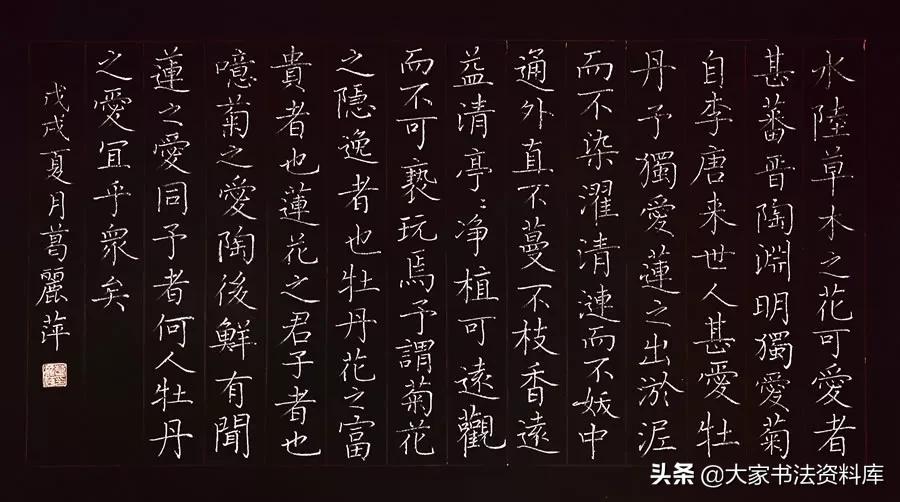 水陸草木之花可愛者
甚蕃晋陶淵明獨愛菊
自李唐来世人甚愛牡
丹予獨愛蓮之出淤泥
而不染濯清漣而不妖中
通外直不蔓不枝香遠
益清亭〻净植可遠觀
而不可褻玩焉予謂菊花
之隱逸者也牡丹花之富
貴者也蓮花之君子者也
噫菊之愛陶後鮮有聞
蓮之愛同予者何人牡丹
之愛宜乎衆矣
戊戌夏月葛麗萍
头条 @大家书法资料库